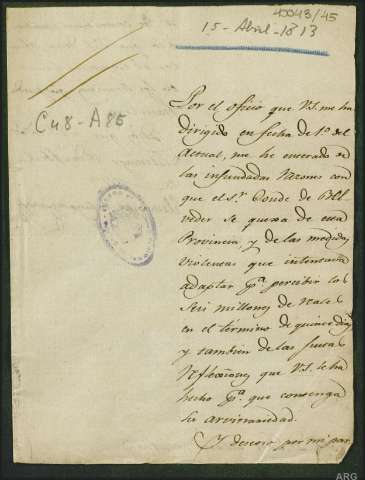 40043/45
15 - Abril - 1813
C48-A85
Por el oficio que V.S. me ha
dirigido en fecha de 1º del
Actual, me he enterado de
las infundadas razones con
que el Sr. Conde de
veder se quexa de esa
Provincia, y de las medidas
violentas que intentaria
adaptar pª. percibir los
seis millones de reales
en el término de quince dias
y tambien de las
reflexiones que V.S. le ha
hecho pª. que convenga
su
Y deseoso por mi par
ARG